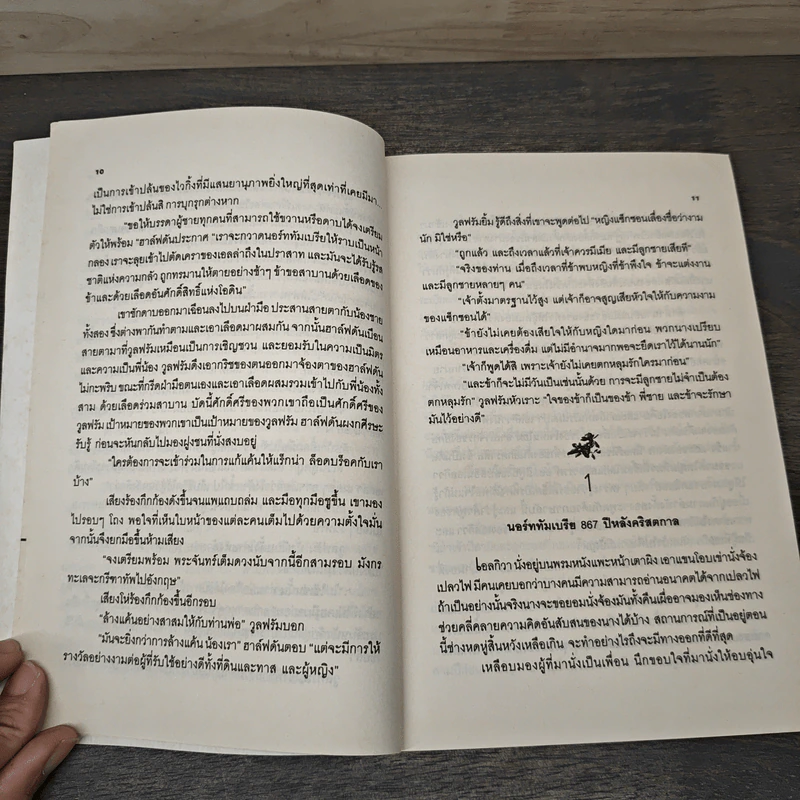 ๑๐
เป็นการเข้าปล้นของไวกิ้งที่มีแสนยานุภาพยิ่งใหญ่ที่สุดเท่าที่เคยมีมา...
ไม่ใช่การเข้าปล้นสิ การบุกรุกต่างหาก
“ขอให้บรรดาผู้ชายทุกคนที่สามารถใช้ขวานหรือดาบได้จงเตรียม
ตัวให้พร้อม” ฮาล์ฟดันประกาศ “เราจะกวาดนอร์ททัมเบรียให้ราบเป็นหน้า
กลอง เราจะลุยเข้าไปตัดเศียรของเอลล่าถึงในปราสาท และมันจะได้รับรู้รส
ชาติแห่งความกลัว ถูกทรมานให้ตายอย่างช้าๆ ข้าขอสาบานด้วยเลือดของ
ข้าและด้วยเลือดอันศักดิ์สิทธิ์แห่งโอดิน”
เขาชักดาบออกมาเฉือนลงไปบนฝ่ามือ ประสานสายตากับน้องชาย
ทั้งสอง ซึ่งต่างพากันทำตามและเอาเลือดมาผสมกัน จากนั้นฮาล์ฟดันเบือน
สายตามาที่วูลฟรัมเหมือนเป็นการเชิญชวน และยอมรับในความเป็นมิตร
และความเป็นพี่น้อง วูลฟรัมดึงเอากริชของตนออกมาจ้องตาของฮาล์ฟดัน
ไม่กะพริบ ขณะที่กรีดฝ่ามือตนเองและเอาเลือดผสมรวมเข้าไปกับพี่น้องทั้ง
สาม ด้วยเลือดร่วมสาบาน บัดนี้ศักดิ์ศรีของพวกเขาถือเป็นศักดิ์ศรีของ
วูลฟรัม เป้าหมายของพวกเขาเป็นเป้าหมายของวูลฟรัม ฮาล์ฟดันผงกศีรษะ
รับรู้ ก่อนจะหันกลับไปมองฝูงชนที่นั่งสงบอยู่
“ใครต้องการจะเข้าร่วมในการแก้แค้นให้แร็กน่า ล็อดบร็อคกับเรา
บ้าง”
เสียงร้องกึกก้องดังขึ้นจนแพแถบถล่ม และมือทุกมือชูขึ้น เขามอง
ไปรอบๆ โถง พอใจที่เห็นใบหน้าของแต่ละคนเต็มไปด้วยความตั้งใจมั่น
จากนั้นจึงยกมือขึ้นห้ามเสียง
“จงเตรียมพร้อม พระจันทร์เต็มดวงนับจากนี้อีกสามรอบ มังกร
ทะเลจะกรีฑาทัพไปอังกฤษ”
เสียงโห่ร้องกึกก้องขึ้นอีกรอบ
“ล้างแค้นอย่างสาสมให้กับท่านพ่อ” วูลฟรัมบอก
“มันจะยิ่งกว่าการล้างแค้น น้องเรา” ฮาล์ฟดันตอบ “แต่จะมีการให้
รางวัลอย่างงามต่อผู้ที่รับใช้อย่างดีทั้งที่ดินและทาส และผู้หญิง”
๑๑
วูลฟรัมยิ้ม รู้ดีถึงสิ่งที่เขาจะพูดต่อไป “หญิงแซ็กซอนเลื่องชื่อว่างาม
นัก มิใช่หรือ”
“ถูกแล้ว และถึงเวลาแล้วที่เจ้าควรมีเมีย และมีลูกชายเสียที”
“จริงของท่าน เมื่อถึงเวลาที่ข้าพบหญิงที่ข้าพึงใจ ข้าจะแต่งงาน
และมีลูกชายหลายๆ คน”
“เจ้าตั้งมาตรฐานไว้สูง แต่เจ้าก็อาจสูญเสียหัวใจให้กับความงาม
ของแซ็กซอนได้”
“ข้ายังไม่เคยต้องเสียใจให้กับหญิงใดมาก่อน พวกนางเปรียบ
เหมือนอาหารและเครื่องดื่ม แต่ไม่มีอำนาจมากพอจะยึดเราไว้ได้นานนัก”
“เจ้าก็พูดได้สิ เพราะเจ้ายังไม่เคยตกหลุมรักใครมาก่อน”
“และข้าก็จะไม่มีวันเป็นเช่นนั้นด้วย การจะมีลูกชายไม่จำเป็นต้อง
ตกหลุมรัก” วูลฟรัมหัวเราะ “ใจของข้าก็เป็นของข้า พี่ชาย และข้าจะรักษา
มันไว้อย่างดี”
1
นอร์ททัมเบรีย 867 ปีหลังคริสตกาล
เอลกิวา นั่งอยู่บนพรมหนังแพะหน้าเตาผิง เอาแขนโอบเข่านั่งจ้อง
เปลวไฟ มีคนเคยบอกว่าบางคนมีความสามารถอ่านอนาคตได้จากเปลวไฟ
ถ้าเป็นอย่างนั้นจริงนางจะขอยอมนั่งจ้องมันทั้งคืนเผื่ออาจมองเห็นช่องทาง
ช่วยคลี่คลายความคิดอันสับสนของนางได้บ้าง สถานการณ์ที่เป็นอยู่ตอน
นี้ช่างหดหู่สิ้นหวังเหลือเกิน จะทำอย่างไรถึงจะมีทางออกที่ดีที่สุด
เหลือบมองผู้ที่มานั่งเป็นเพื่อน นึกขอบใจที่มานั่งให้อบอุ่นใจ